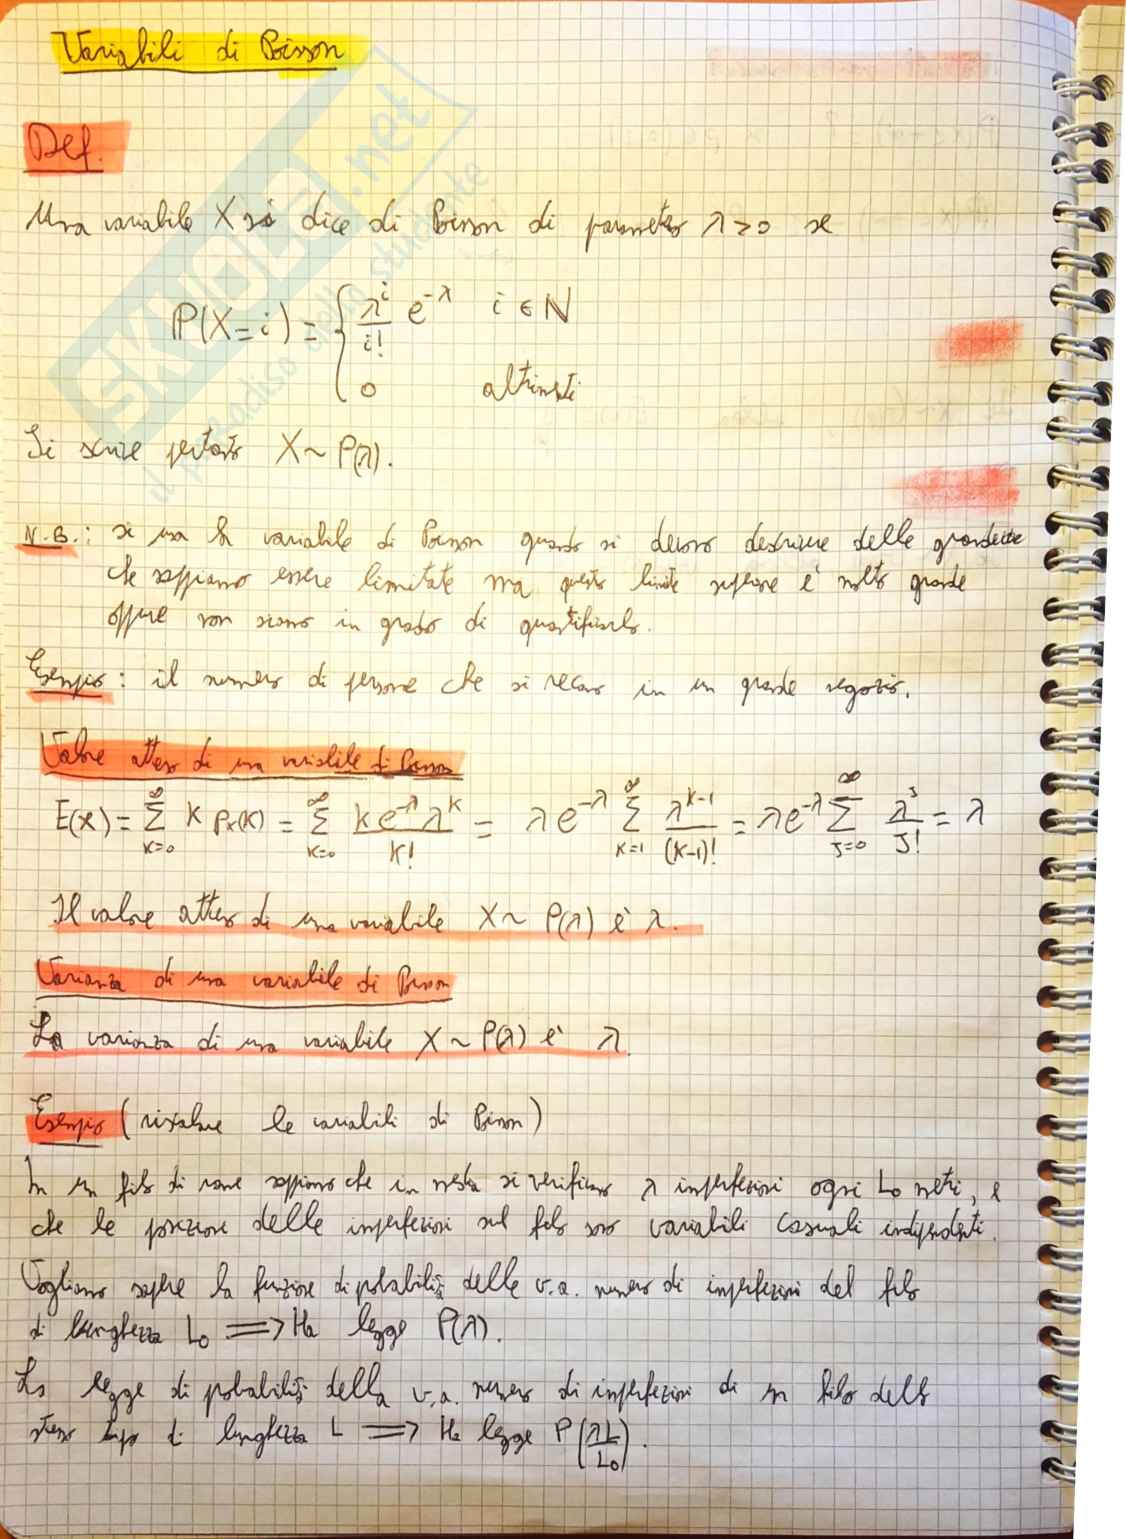 Variabili di Poisson
Def.
Una variabile X si dice di Poisson di parametro λ>0 se
P(X=i) = { λ^i/i! e^-λ i ∈ N
0 altrimenti
Si scrive pertanto X ~ P(λ).
N.B.: si usa la variabile di Poisson quando si devono descrivere delle grandezze
che sappiamo essere limitate ma questo limite superiore è molto grande
oppure non siamo in grado di quantificarlo.
Esempio: il numero di persone che si recano in un grande negozio.
Valore atteso di una variabile di Poisson
E(x) = Σ_{K=0}^∞ K p_x(K) = Σ_{K=0}^∞ K e^-λ λ^K / K! = λ e^-λ Σ_{K=1}^∞ λ^{K-1}/(K-1)! = λ e^-λ Σ_{J=0}^∞ λ^J/J! = λ
Il valore atteso di una variabile X ~ P(λ) è λ.
Varianza di una variabile di Poisson
La varianza di una variabile X ~ P(λ) è λ.
Esempio (riscalare le variabili di Poisson)
In un filo di rame sappiamo che in media si verificano λ imperfezioni ogni L₀ metri, e
che le posizioni delle imperfezioni sul filo sono variabili casuali indipendenti.
Vogliamo sapere la funzione di probabilità delle v.a. numero di imperfezioni del filo
di lunghezza L₀ ⟹ Ha legge P(λ).
La legge di probabilità della v.a. numero di imperfezioni di un filo dello
stesso tipo di lunghezza L ⟹ Ha legge P(λL/L₀).
SKUOLA.net
il paradiso dello studente